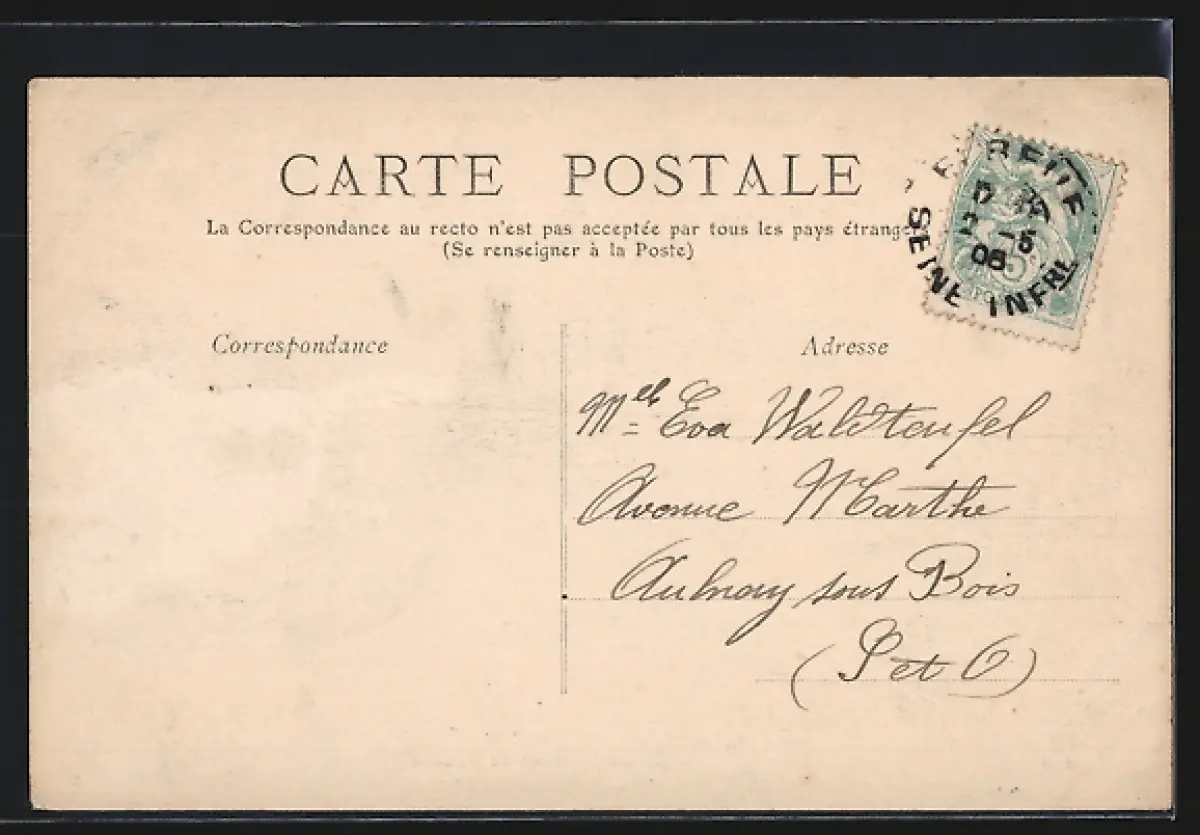 CARTE POSTALE
La Correspondance au recto n'est pas acceptée par tous les pays étrange
(Se renseigner à la Poste)
SEINE INFRE
-5
06
Correspondance
Adresse
Melle Eva Waldteufel
Avenue Marthe
Aulnay sous Bois
(S et O)